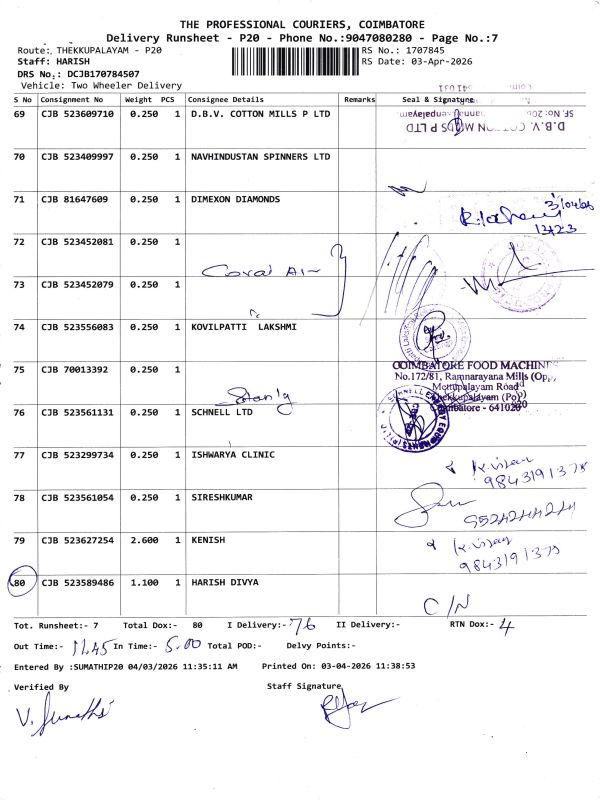 THE PROFESSIONAL COURIERS, COIMBATORE
Delivery Runsheet - P20 - Phone No.:9047080280 - Page No.:7
Route:, THEKKUPALAYAM - P20 RS No.: 1707845
Staff: HARISH RS Date: 03-Apr-2026
DRS No.: DCJB170784507
Vehicle: Two Wheeler Delivery
S No Consignment No Weight PCS Consignee Details Remarks Seal & Signature
69 CJB 523609710 0.250 1 D.B.V. COTTON MILLS P LTD
D.B.V. COTTON MILLS P LTD
SF.No: 20
641 031
70 CJB 523409997 0.250 1 NAVHINDUSTAN SPINNERS LTD
71 CJB 81647609 0.250 1 DIMEXON DIAMONDS
13423
72 CJB 523452081 0.250 1
Coral
73 CJB 523452079 0.250 1
74 CJB 523556083 0.250 1 KOVILPATTI LAKSHMI
75 CJB 70013392 0.250 1
COIMBATORE FOOD MACHINES
No.172/81, Ramnarayana Mills (Opp)
Mettupalayam Road
Thekkupalayam (Po)
Coimbatore - 641020
76 CJB 523561131 0.250 1 SCHNELL LTD
77 CJB 523299734 0.250 1 ISHWARYA CLINIC
K. Vijay
9843191375
78 CJB 523561054 0.250 1 SIRESHKUMAR
79 CJB 523627254 2.600 1 KENISH
K. Vijay
9843191375
80 CJB 523589486 1.100 1 HARISH DIVYA
C/N
Tot. Runsheet:- 7 Total Dox:- 80 I Delivery:- 76 II Delivery:- RTN Dox:- 4
Out Time:- 11.45 In Time:- 5.00 Total POD:- Delvy Points:-
Entered By :SUMATHIP20 04/03/2026 11:35:11 AM Printed On: 03-04-2026 11:38:53
Verified By Staff Signature
V. Sumathi